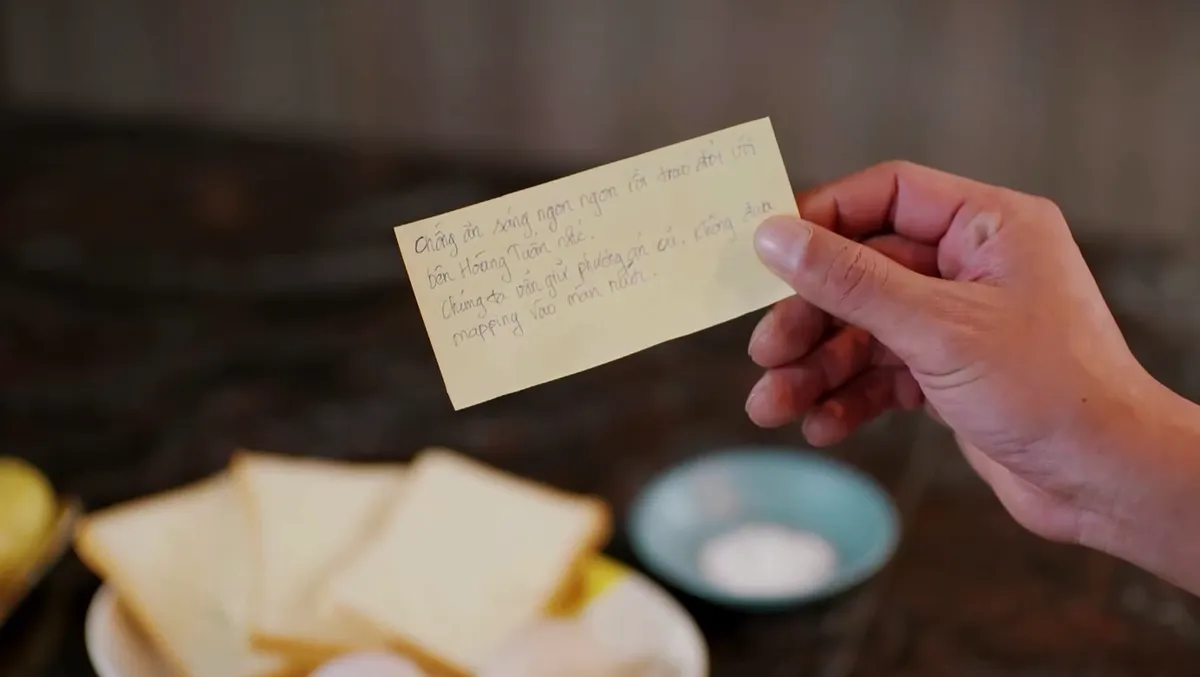 Chồng ăn sáng ngon ngon rồi trao đổi với
bên Hoàng Tuấn nhé.
Chúng ta vẫn giữ phương án cũ. Không đưa
mapping vào màn hình.